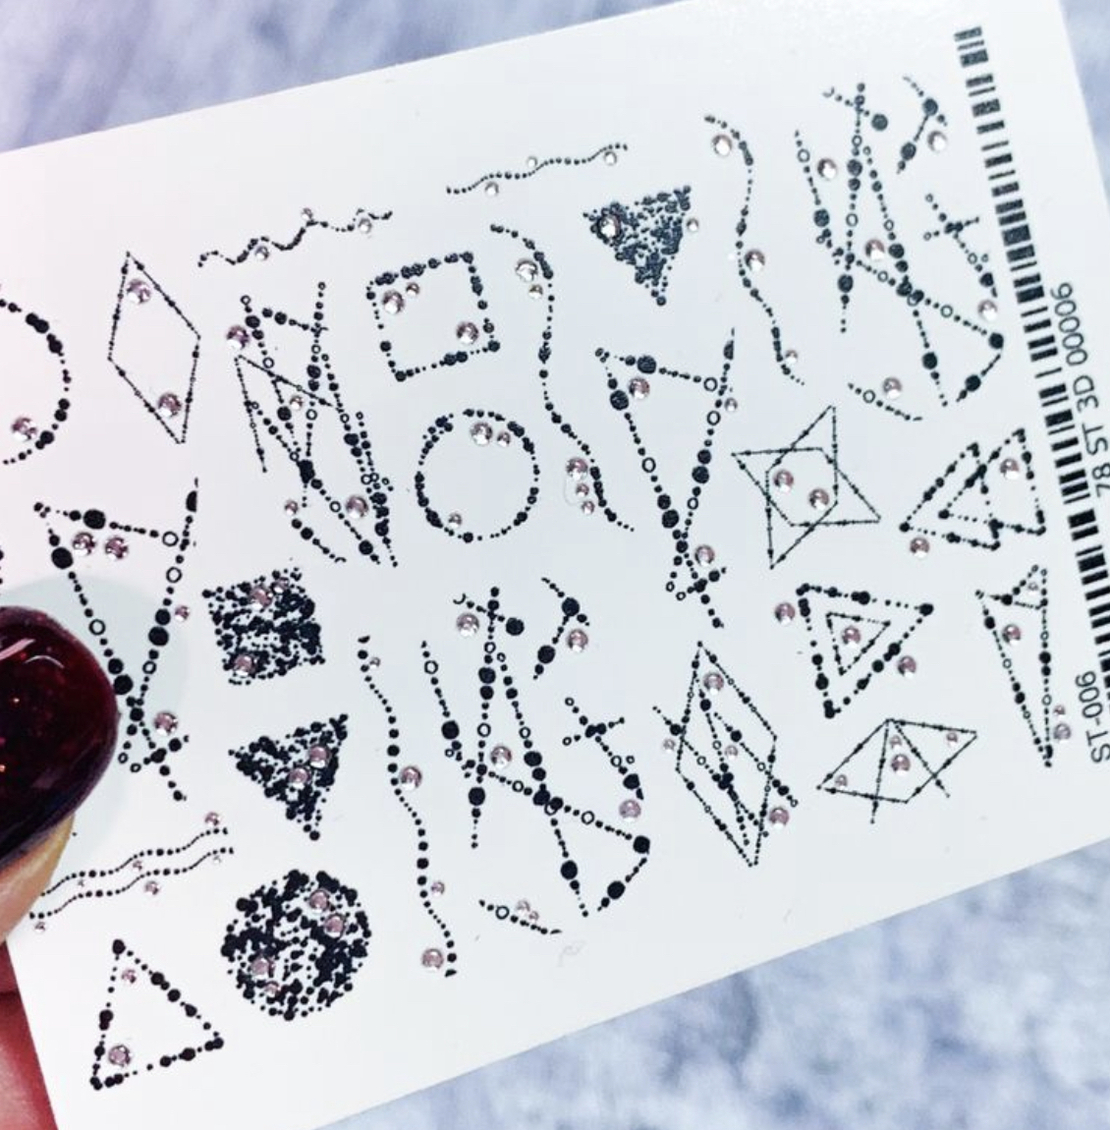 78 ST 3D 00006
ST-006